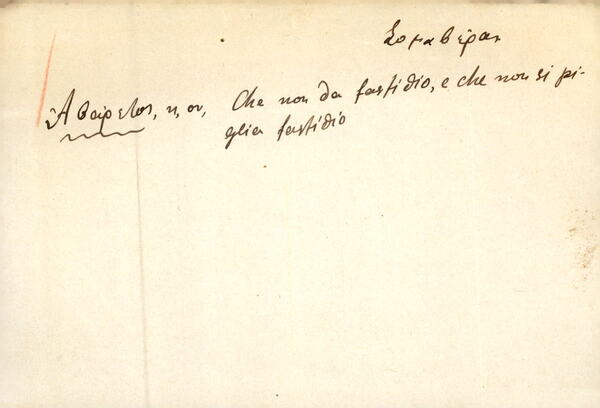 Σομαβέρας
Ἀβάρετος, η, ον, Che non da fastidio, e che non si pi-
glia fastidio